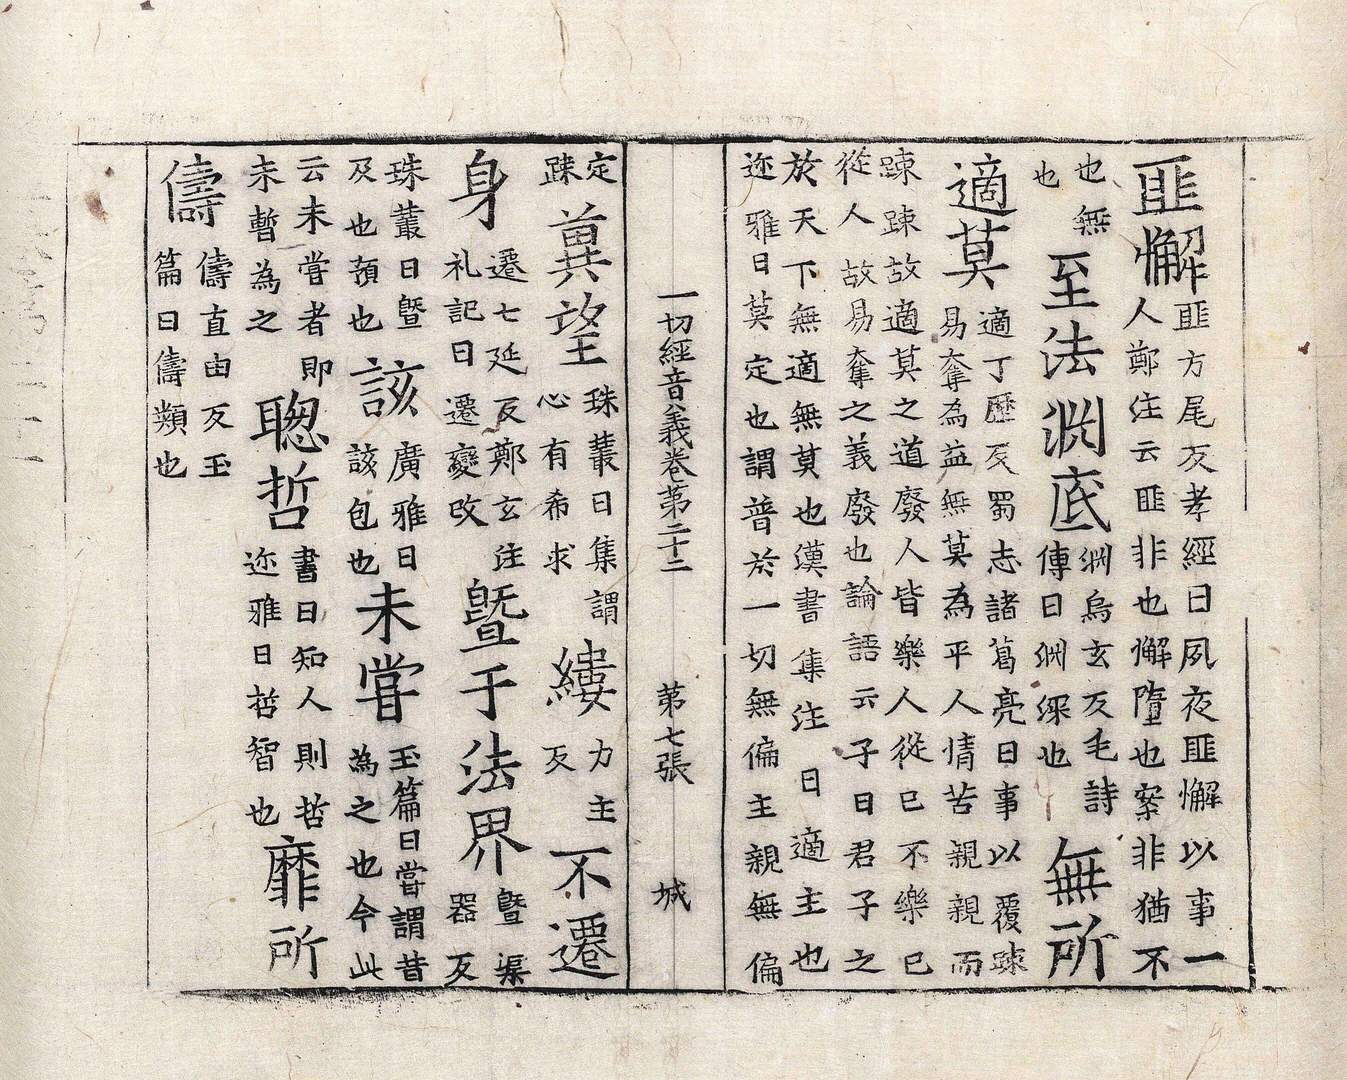 匪懈匪方尾反孝經曰夙夜匪懈以事一人鄭注云匪非也懈墮也案非猶不
也無也至法渕底渕烏玄反毛詩傳曰渕深也無所
適莫適丁歷反蜀志諸葛亮曰事以覆踈易奪為益無莫為平人情苦親親而
踈踈故適莫之道廢人皆樂人從己不樂己從人故易奪之義廢也論語云子曰君子之
於天下無適無莫也漢書集注曰適主也迩雅曰莫定也謂普於一切無偏主親無偏
一切經音義卷第二十二 第七張 城
定踈冀望珠叢曰集謂心有希求縷力主反不遷
身遷七延反鄭玄注礼記曰遷變改曁于法界曁渠器反
珠叢曰曁及也頟也該廣雅曰該包也未嘗玉篇曰嘗謂昔為之也今此
云未嘗者即未暫為之聰哲書曰知人則哲迩雅曰哲智也靡所
儔儔直由反玉篇曰儔類也